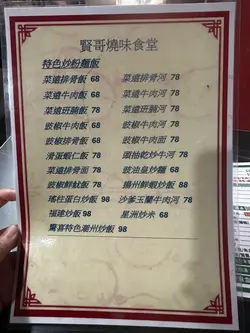 賢哥燒味食堂
特色炒粉麵飯
菜遠排骨飯 68 菜遠排骨河 78
菜遠牛肉飯 68 菜遠牛肉河 78
菜遠班腩飯 78 菜遠班腩河 78
豉椒牛肉飯 68 豉椒牛肉河 78
豉椒排骨飯 68 豉椒牛肉面 78
滑蛋蝦仁飯 78 頭抽乾炒牛河 78
菜遠排骨面 78 豉油皇炒麵 68
豉椒鮮魷飯 78 揚州鮮蝦炒飯 88
瑤柱蛋白炒飯 98 沙爹玉蘭牛肉河 78
福建炒飯 98 星洲炒米 68
驚喜特色潮州炒飯 98